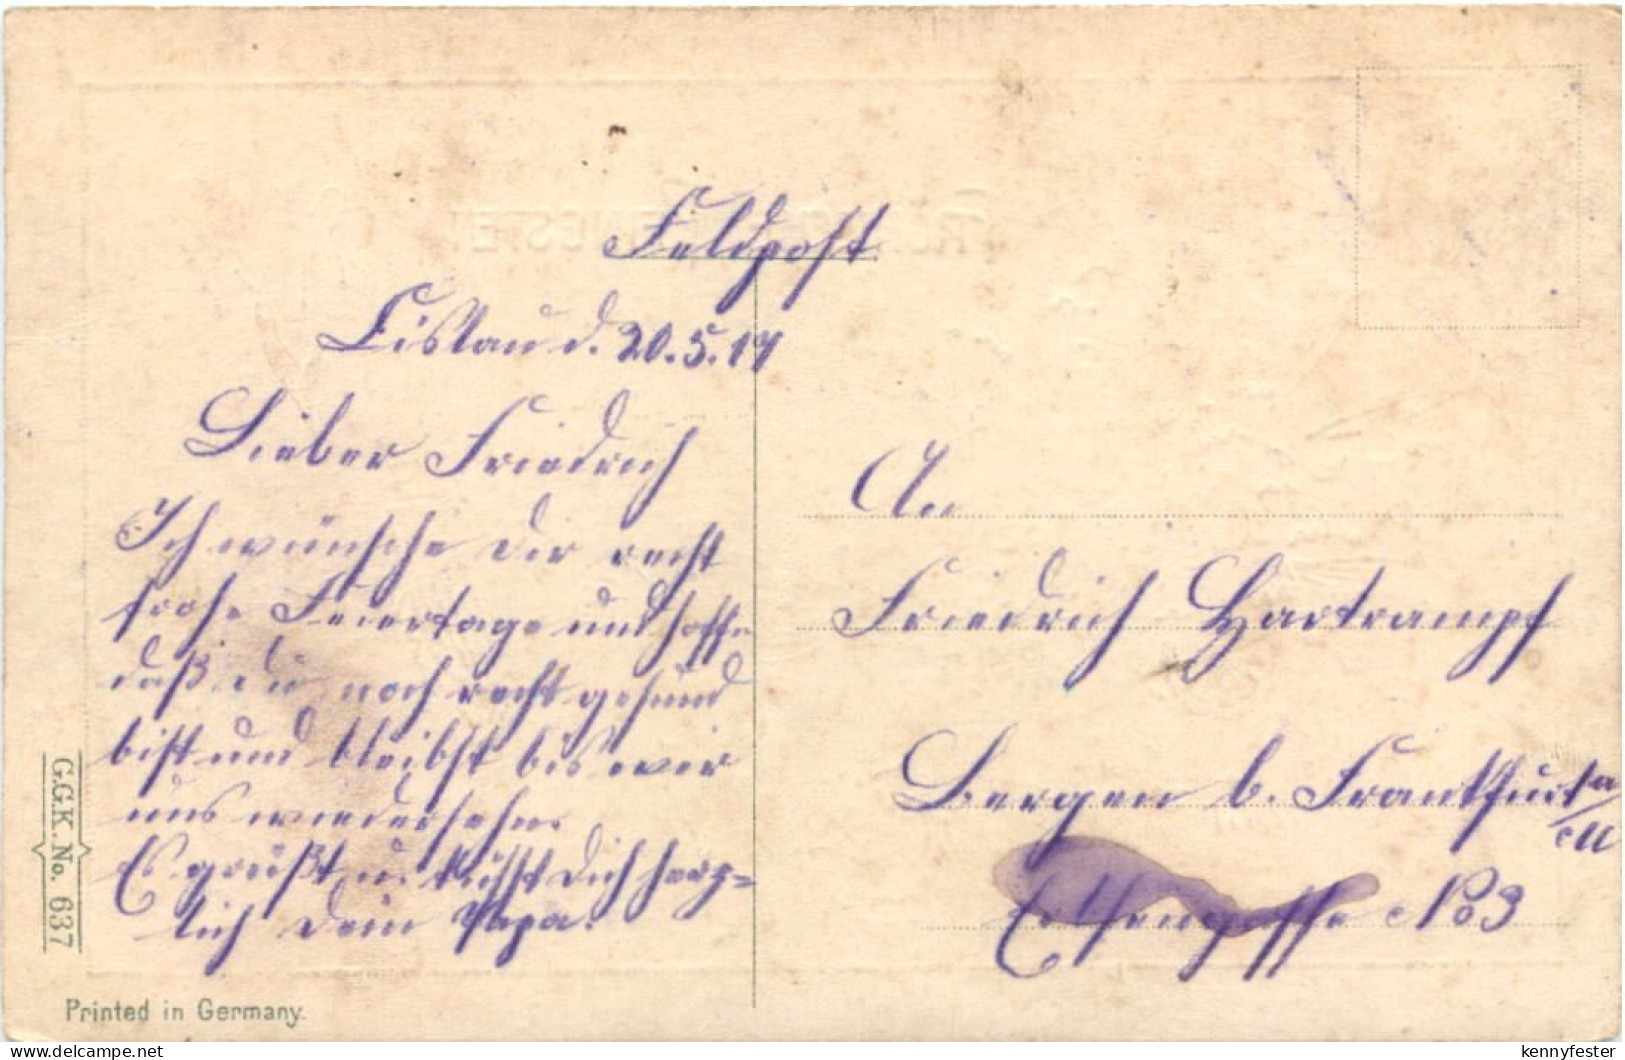 Feldpost
d. 20.5.17
Lieber Friedrich
Ich wünsche Dir recht
frohe Feiertage und hoffe
daß Du noch recht gesund
bist und bleibst bis wir
uns wiedersehen.
Es grüßt u. küßt Dich herz=
lich Dein Papa.
An
Friedrich Hartrampf
Bergen b. Frankfurt a/M
No 3
G.G.K. No. 637
Printed in Germany.
kennyfester